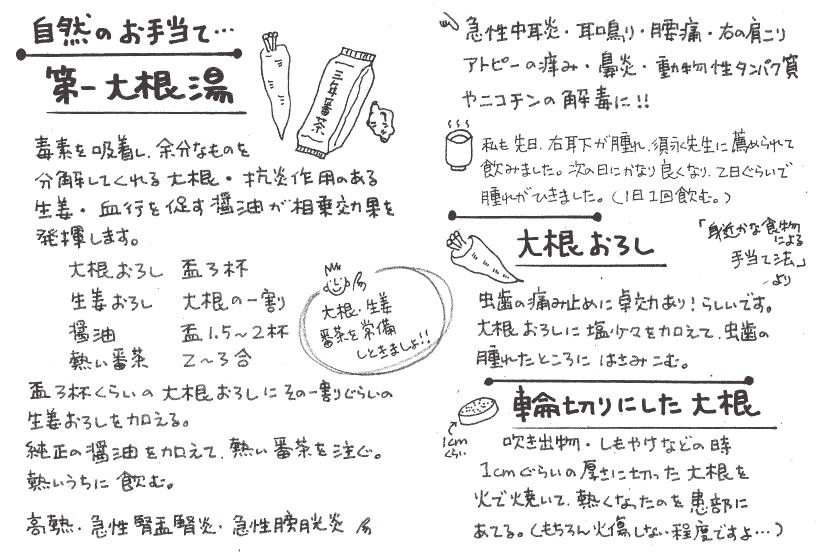 自然のお手当て…
第一大根湯
三年番茶
毒素を吸着し、余分なものを
分解してくれる大根・抗炎作用のある
生姜・血行を促す醤油が相乗効果を
発揮します。
大根おろし 盃3杯
生姜おろし 大根の一割
醤油 盃1.5〜2杯
熱い番茶 2〜3合
大根・生姜
番茶を常備
しときましょ!!
盃3杯くらいの大根おろしにその一割ぐらいの
生姜おろしを加える。
純正の醤油を加えて、熱い番茶を注ぐ。
熱いうちに飲む。
高熱・急性腎盂腎炎・急性膀胱炎
急性中耳炎・耳鳴り・腰痛・右の肩こり
アトピーの痒み・鼻炎・動物性タンパク質
やニコチンの解毒に!!
私も先日、右耳下が腫れ、須永先生に薦められて
飲みました。次の日にかなり良くなり、2日ぐらいで
腫れがひきました。(1日1回飲む。)
大根おろし
「身近かな食物
による
手当て法」
より
虫歯の痛み止めに卓効あり!らしいです。
大根おろしに塩少々を加えて、虫歯の
腫れたところにはさみこむ。
輪切りにした大根
1cm
ぐらい
吹き出物・しもやけなどの時
1cmぐらいの厚さに切った大根を
火で焼いて、熱くなったのを患部に
あてる。(もちろん火傷しない程度ですよ…)